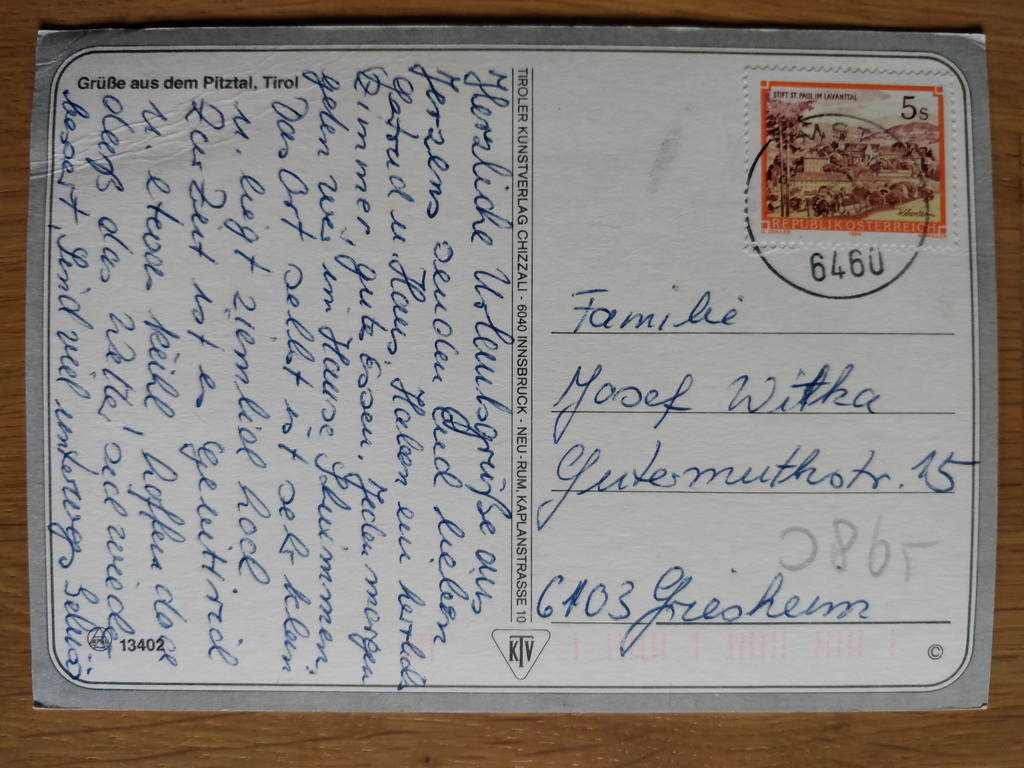 Grüße aus dem Pitztal, Tirol
Herzliche Urlaubsgrüße aus
Jerzens senden Eud lieben
Gertrud u. Hans. Haben ein herrlich
Zimmer, gutes Essen. Jeden morgen
gehen wir im Hause Schwimmen.
Das Ort selbst ist sehr klein
u. liegt ziemlich hoch.
Zur Zeit ist es Gewittrich
u. etwas kühl, hoffen doch
daß das Wetter sich wieder
bessert, Sind viel unterwegs
13402
TIROLER KUNSTVERLAG CHIZZALI - 6040 INNSBRUCK - NEU-RUM, KAPLANSTRASSE 10
KTV
STIFT ST. PAUL IM LAVANTTAL
5s
REPUBLIK ÖSTERREICH
6460
Familie
Josef Wittka
Gutermuthstr. 15
6103 Griesheim
©